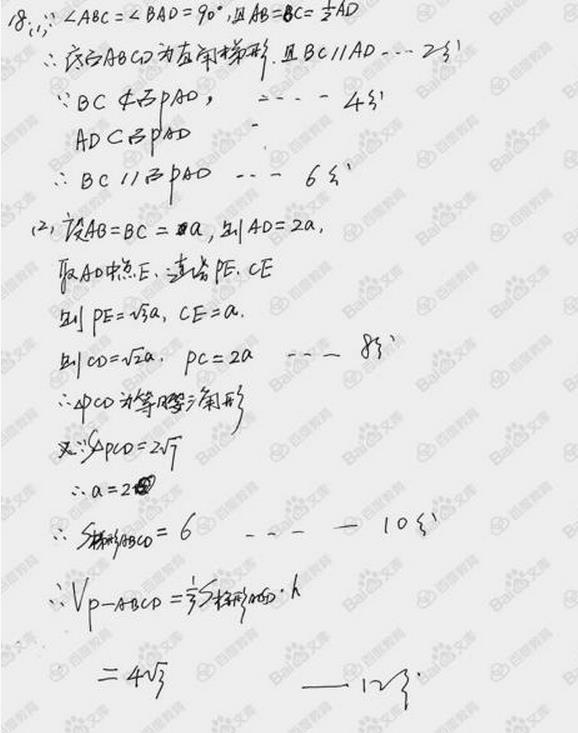 18.(1)∵∠ABC=∠BAD=90°,且AB=BC=½AD
∴底面ABCD为直角梯形.且BC//AD---2分
∵BC⊄面PAD, ----4分
AD⊂面PAD
∴BC//面PAD --- 6分
(2)设AB=BC=a,则AD=2a,
取AD中点E.连结PE.CE
则PE=√3a, CE=a.
则CD=√2a. PC=2a ---- 8分
∴△PCD为等腰三角形
又∵S△PCD=2√7
∴a=2
∴S梯形ABCD=6 ---- 10分
∴Vp-ABCD=⅓S梯形ABCD·h
=4√3 —12分